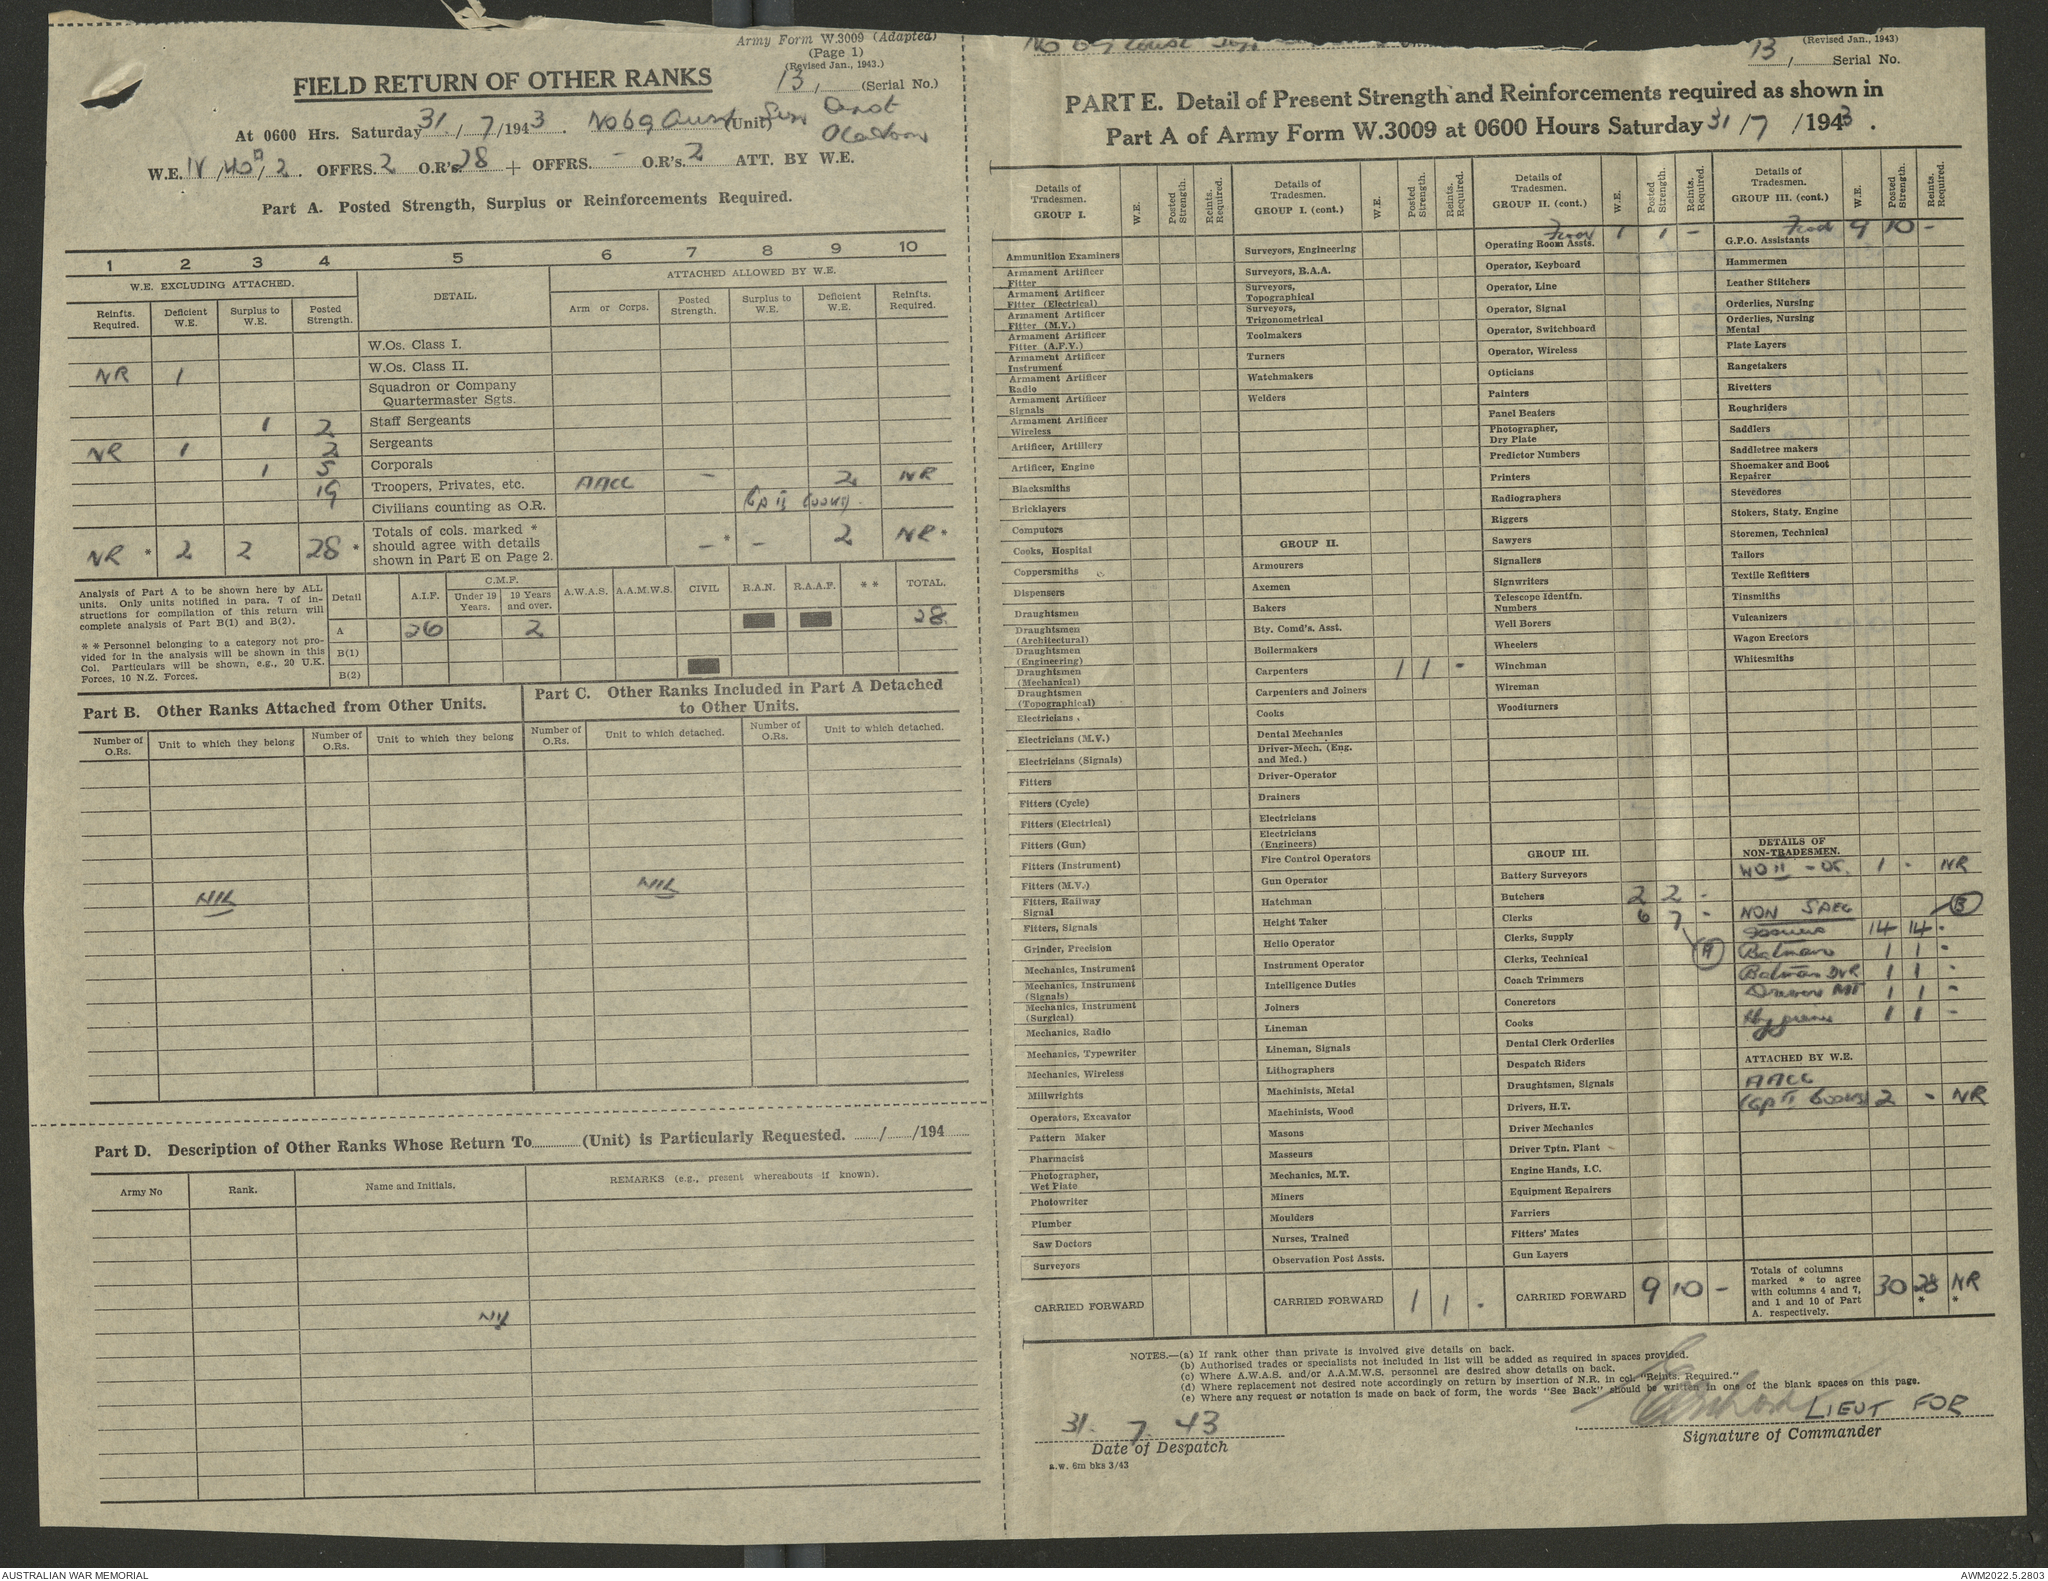 Army Form W.3009 (Adapted)
(Page 1)
(Revised Jan., 1943.)
FIELD RETURN OF OTHER RANKS
13, (Serial No.)
At 0600 Hrs. Saturday 31 / 7 /1943. No 69 Aust (Unit)
W.E. IV, 2. OFFRS. 2 O.R's. 28 + OFFRS. - O.R's. 2 ATT. BY W.E.
Part A. Posted Strength, Surplus or Reinforcements Required.
1 2 3 4 5 6 7 8 9 10
W.E. EXCLUDING ATTACHED.
DETAIL.
ATTACHED ALLOWED BY W.E.
Reinfts. Required.
Deficient W.E.
Surplus to W.E.
Posted Strength.
Arm or Corps.
Posted Strength.
Surplus to W.E.
Deficient W.E.
Reinfts. Required.
W.Os. Class I.
NR 1 W.Os. Class II.
Squadron or Company Quartermaster Sgts.
1 2 Staff Sergeants
NR 1 2 Sergeants
1 5 Corporals
19 Troopers, Privates, etc. AACC - 2 NR
Civilians counting as O.R. (Gp II Cooks)
NR * 2 2 28 * Totals of cols. marked * should agree with details shown in Part E on Page 2. - * - 2 NR *
Analysis of Part A to be shown here by ALL
units. Only units notified in para. 7 of in-
structions for compilation of this return will
complete analysis of Part B(1) and B(2).
* * Personnel belonging to a category not pro-
vided for in the analysis will be shown in this
Col. Particulars will be shown, e.g., 20 U.K.
Forces, 10 N.Z. Forces.
Detail A.I.F. C.M.F. Under 19 Years. 19 Years and over. A.W.A.S. A.A.M.W.S. CIVIL R.A.N. R.A.A.F. * * TOTAL.
A 26 2 28
B(1)
B(2)
Part B. Other Ranks Attached from Other Units.
Part C. Other Ranks Included in Part A Detached
to Other Units.
Number of O.Rs.
Unit to which they belong
Number of O.Rs.
Unit to which they belong
Number of O.Rs.
Unit to which detached.
Number of O.Rs.
Unit to which detached.
NIL
NIL
Part D. Description of Other Ranks Whose Return To (Unit) is Particularly Requested. / /194
Army No
Rank.
Name and Initials.
REMARKS (e.g., present whereabouts if known).
NIL
(Revised Jan., 1943)
13 / Serial No.
PART E. Detail of Present Strength and Reinforcements required as shown in
Part A of Army Form W.3009 at 0600 Hours Saturday 31 / 7 / 1943.
Details of Tradesmen. GROUP I.
W.E.
Posted Strength.
Reints. Required.
Ammunition Examiners
Armament Artificer Fitter
Armament Artificer Fitter (Electrical)
Armament Artificer Fitter (M.V.)
Armament Artificer Fitter (A.F.V.)
Armament Artificer Instrument
Armament Artificer Radio
Armament Artificer Signals
Armament Artificer Wireless
Artificer, Artillery
Artificer, Engine
Blacksmiths
Bricklayers
Computors
Cooks, Hospital
Coppersmiths
Dispensers
Draughtsmen
Draughtsmen (Architectural)
Draughtsmen (Engineering)
Draughtsmen (Mechanical)
Draughtsmen (Topographical)
Electricians
Electricians (M.V.)
Electricians (Signals)
Fitters
Fitters (Cycle)
Fitters (Electrical)
Fitters (Gun)
Fitters (Instrument)
Fitters (M.V.)
Fitters, Railway Signal
Fitters, Signals
Grinder, Precision
Mechanics, Instrument
Mechanics, Instrument (Signals)
Mechanics, Instrument (Surgical)
Mechanics, Radio
Mechanics, Typewriter
Mechanics, Wireless
Millwrights
Operators, Excavator
Pattern Maker
Pharmacist
Photographer, Wet Plate
Photowriter
Plumber
Saw Doctors
Surveyors
CARRIED FORWARD
Details of Tradesmen. GROUP I. (cont.)
W.E.
Posted Strength.
Reints. Required.
Surveyors, Engineering
Surveyors, R.A.A.
Surveyors, Topographical
Surveyors, Trigonometrical
Toolmakers
Turners
Watchmakers
Welders
GROUP II.
Armourers
Axemen
Bakers
Bty. Comd's. Asst.
Boilermakers
Carpenters 1 1 -
Carpenters and Joiners
Cooks
Dental Mechanics
Driver-Mech. (Eng. and Med.)
Driver-Operator
Drainers
Electricians
Electricians (Engineers)
Fire Control Operators
Gun Operator
Hatchman
Height Taker
Hello Operator
Instrument Operator
Intelligence Duties
Joiners
Lineman
Lineman, Signals
Lithographers
Machinists, Metal
Machinists, Wood
Masons
Masseurs
Mechanics, M.T.
Miners
Moulders
Nurses, Trained
Observation Post Assts.
CARRIED FORWARD 1 1 -
Details of Tradesmen. GROUP II. (cont.)
W.E.
Posted Strength.
Reints. Required.
Fwd 1 1 -
Operating Room Assts.
Operator, Keyboard
Operator, Line
Operator, Signal
Operator, Switchboard
Operator, Wireless
Opticians
Painters
Panel Beaters
Photographer, Dry Plate
Predictor Numbers
Printers
Radiographers
Riggers
Sawyers
Signallers
Signwriters
Telescope Identfn. Numbers
Well Borers
Wheelers
Winchman
Wireman
Woodturners
GROUP III.
Battery Surveyors
Butchers 2 2 -
Clerks 6 7 -
Clerks, Supply (A)
Clerks, Technical
Coach Trimmers
Concretors
Cooks
Dental Clerk Orderlies
Despatch Riders
Draughtsmen, Signals
Drivers, H.T.
Driver Mechanics
Driver Tptn. Plant
Engine Hands, I.C.
Equipment Repairers
Farriers
Fitters' Mates
Gun Layers
CARRIED FORWARD 9 10 -
Details of Tradesmen. GROUP III. (cont.)
W.E.
Posted Strength.
Reints. Required.
Fwd 9 10 -
G.P.O. Assistants
Hammermen
Leather Stitchers
Orderlies, Nursing
Orderlies, Nursing Mental
Plate Layers
Rangetakers
Rivetters
Roughriders
Saddlers
Saddletree makers
Shoemaker and Boot Repairer
Stevedores
Stokers, Staty. Engine
Storemen, Technical
Tailors
Textile Refitters
Tinsmiths
Vulcanizers
Wagon Erectors
Whitesmiths
DETAILS OF NON-TRADESMEN.
WO II - 1 - NR
NON SPEC (B)
Issuers 14 14 -
Batman 1 1 -
Batman DVR 1 1 -
Drivers MT 1 1 -
1 1 -
ATTACHED BY W.E.
AACC
(Gp II Cooks) 2 - NR
Totals of columns marked * to agree with columns 4 and 7, and 1 and 10 of Part A. respectively. 30 28 * NR *
NOTES.—(a) If rank other than private is involved give details on back.
(b) Authorised trades or specialists not included in list will be added as required in spaces provided.
(c) Where A.W.A.S. and/or A.A.M.W.S. personnel are desired show details on back.
(d) Where replacement not desired note accordingly on return by insertion of N.R. in col. "Reints. Required."
(e) Where any request or notation is made on back of form, the words "See Back" should be written in one of the blank spaces on this page.
31. 7. 43
Date of Despatch
LIEUT FOR
Signature of Commander
a.w. 6m bks 3/43
AUSTRALIAN WAR MEMORIAL
AWM2022.5.2803